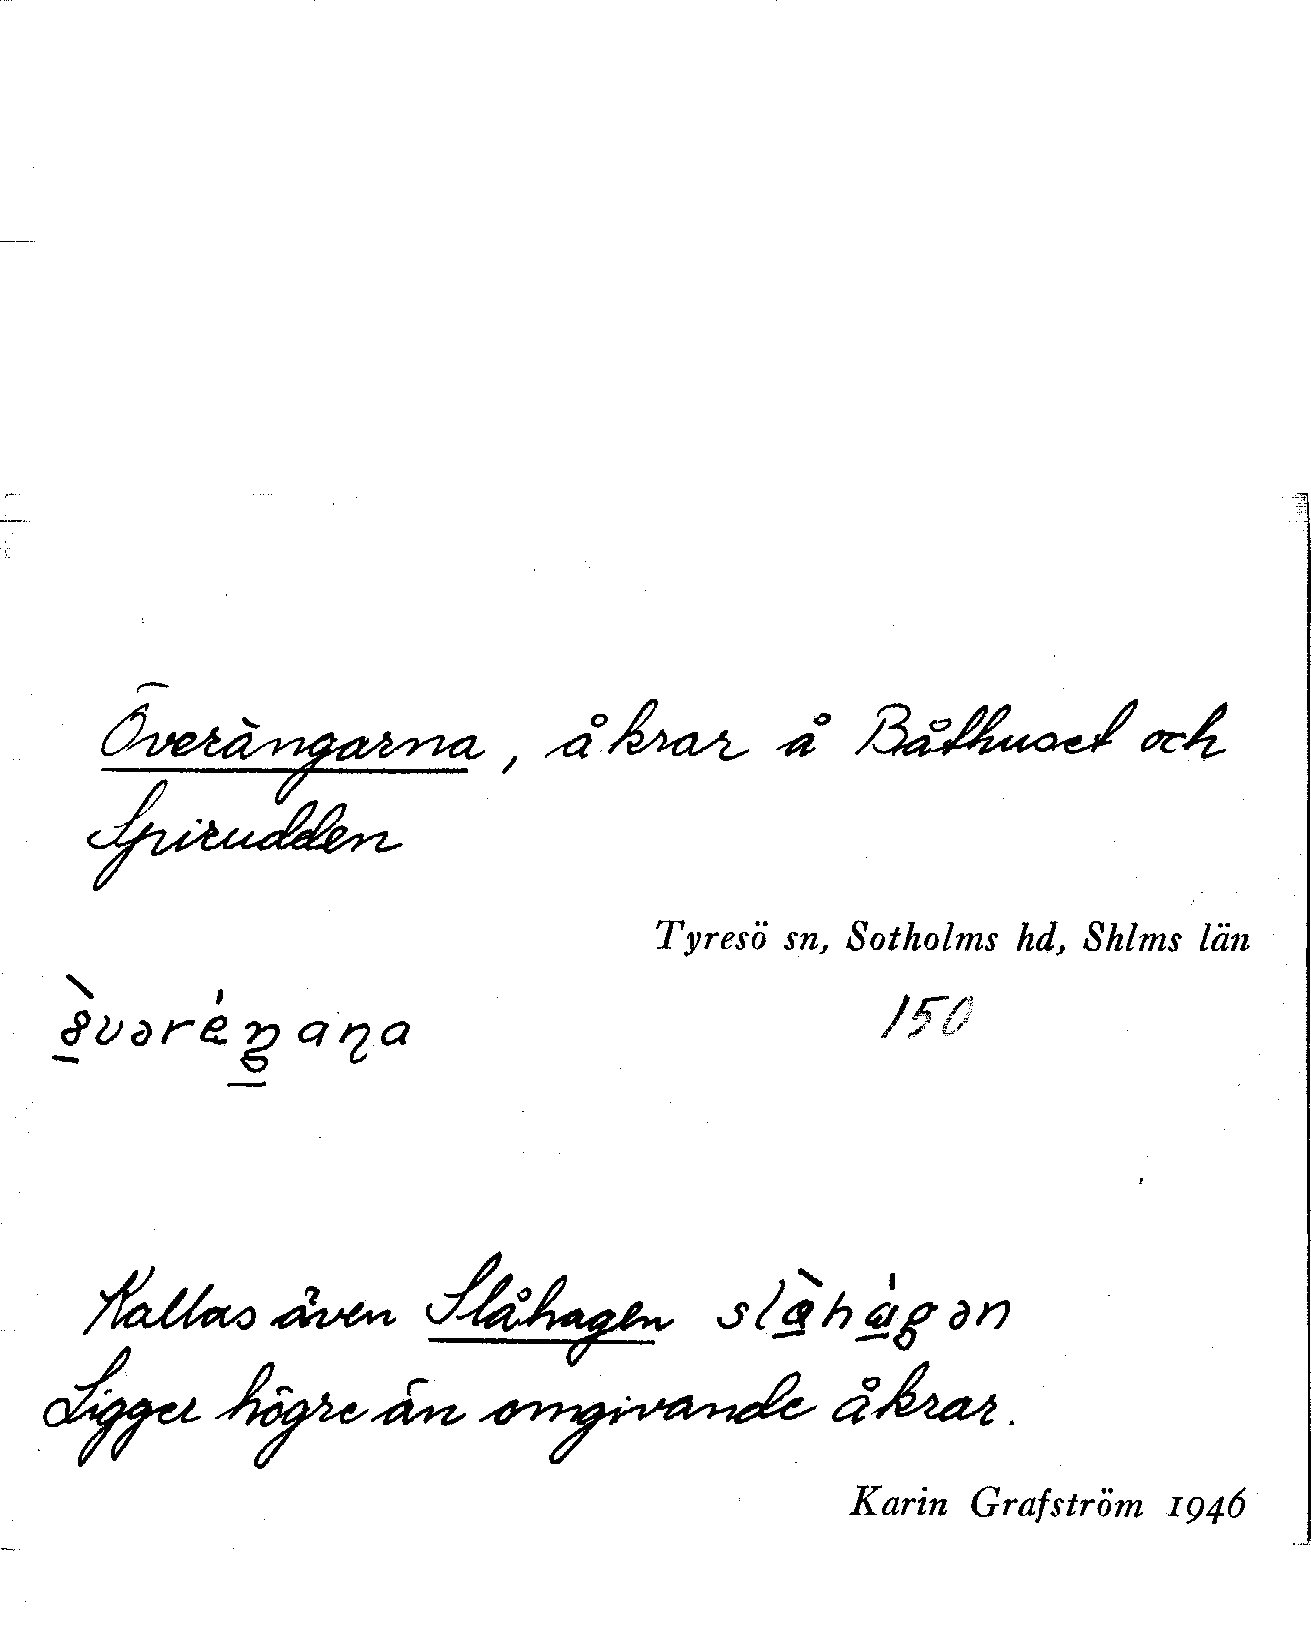 Överängarna, åkrar å Båthuset och
Spirudden
Tyresö sn, Sotholms hd, Shlms län
150
Kallas även Slåhagen
Ligger högre än omgivande åkrar.
Karin Grafström 1946